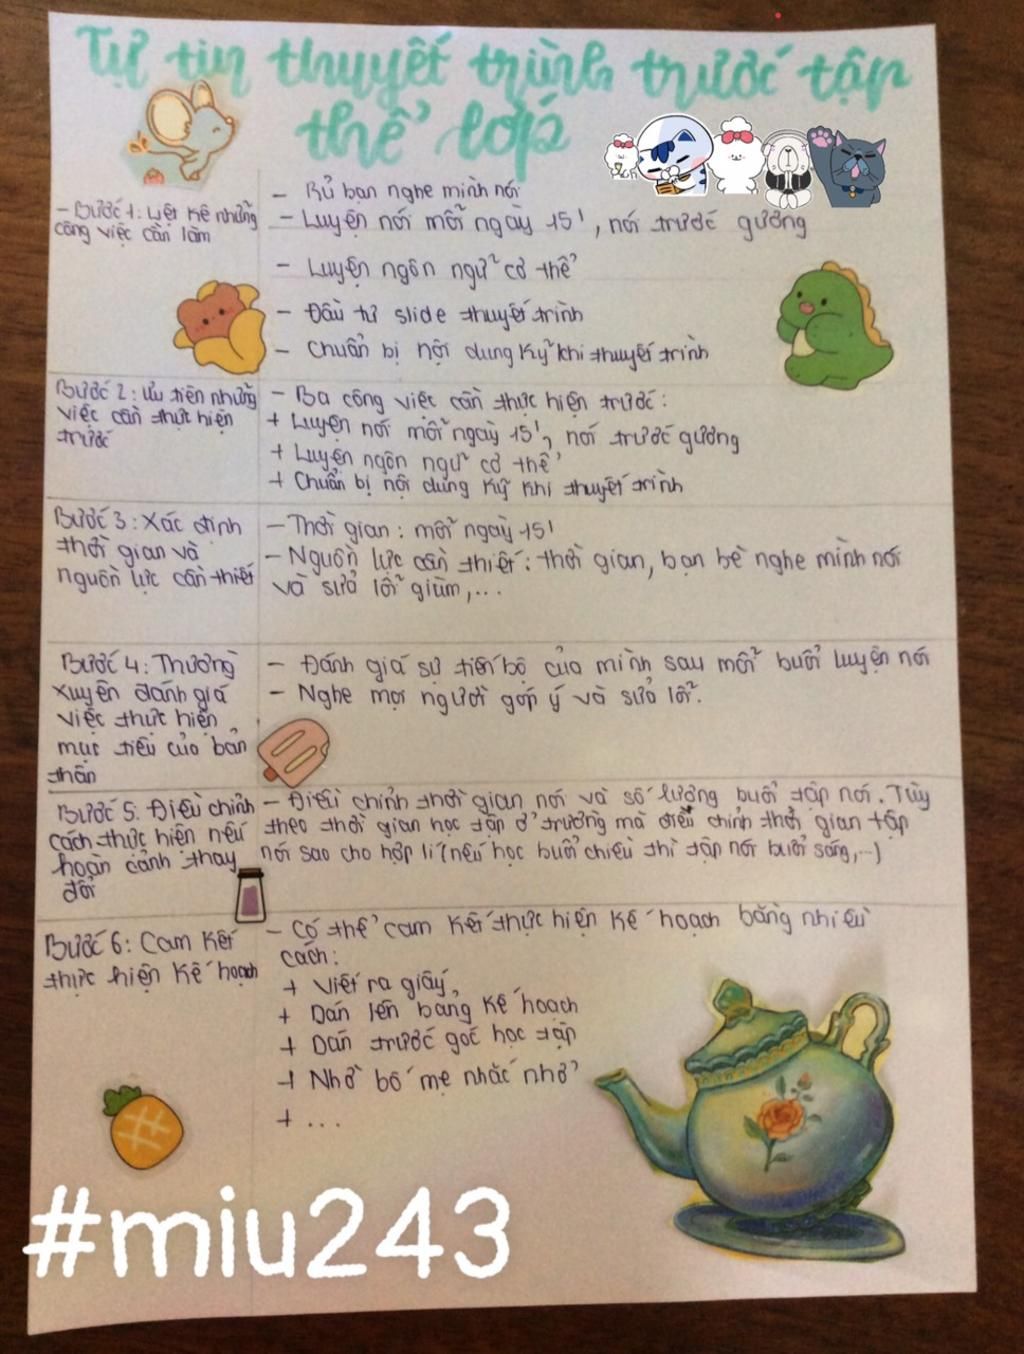 Tự tin thuyết trình trước tập
thể lớp
- Bước 1: Liệt kê những
công việc cần làm
- Rủ bạn nghe mình nói
- Luyện nói mỗi ngày 15', nói trước gương
- Luyện ngôn ngữ cơ thể
- Đầu tư slide thuyết trình
- Chuẩn bị nội dung kỹ khi thuyết trình
Bước 2: Ưu tiên những
việc cần thực hiện
trước
- Ba công việc cần thực hiện trước:
+ Luyện nói mỗi ngày 15', nói trước gương
+ Luyện ngôn ngữ cơ thể
+ Chuẩn bị nội dung kỹ khi thuyết trình
Bước 3: Xác định
thời gian và
nguồn lực cần thiết
- Thời gian: mỗi ngày 15'
- Nguồn lực cần thiết: thời gian, bạn bè nghe mình nói
và sửa lỗi giùm,...
Bước 4: Thường
xuyên đánh giá
việc thực hiện
mục tiêu của bản
thân
- Đánh giá sự tiến bộ của mình sau mỗi buổi luyện nói
- Nghe mọi người góp ý và sửa lỗi.
Bước 5: Điều chỉnh
cách thực hiện nếu
hoàn cảnh thay
đổi
- Điều chỉnh thời gian nói và số lượng buổi tập nói. Tùy
theo thời gian học tập ở trường mà điều chỉnh thời gian tập
nói sao cho hợp lí (nếu học buổi chiều thì tập nói buổi sáng,...)
Bước 6: Cam kết
thực hiện kế hoạch
- Có thể cam kết thực hiện kế hoạch bằng nhiều
cách:
+ Viết ra giấy,
+ Dán lên bảng kế hoạch
+ Dán trước góc học tập
+ Nhờ bố mẹ nhắc nhở
+ ...
#miu243